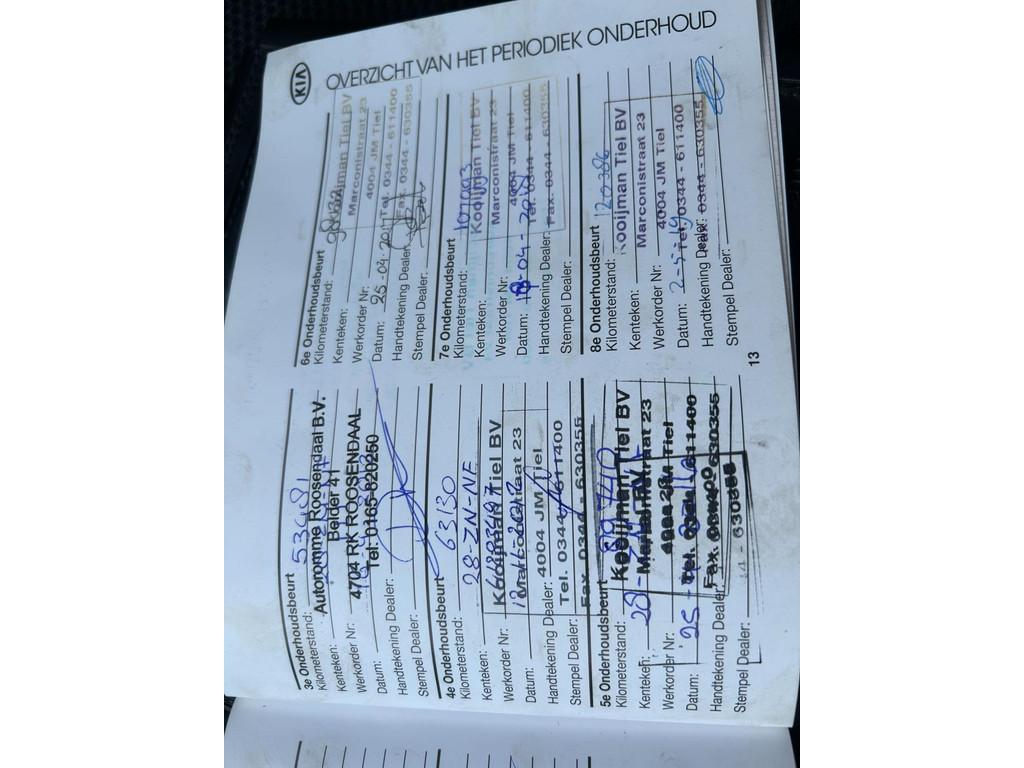 KIA
OVERZICHT VAN HET PERIODIEK ONDERHOUD
3e Onderhoudsbeurt
Kilometerstand: 53481
Kenteken:
Werkorder Nr:
Datum:
Handtekening Dealer:
Stempel Dealer:
Autoromme Roosendaal B.V.
Belder 41
4704 RK ROOSENDAAL
Tel: 0165-620250
4e Onderhoudsbeurt
Kilometerstand: 63130
Kenteken: 28-ZN-NF
Werkorder Nr:
Datum:
Handtekening Dealer:
Stempel Dealer:
Kooijman Tiel BV
Marconistraat 23
4004 JM Tiel
Tel. 0344 - 611400
Fax. 0344 - 630355
5e Onderhoudsbeurt
Kilometerstand:
Kenteken:
Werkorder Nr:
Datum: 25
Handtekening Dealer:
Stempel Dealer:
Kooijman Tiel BV
Marconistraat 23
6e Onderhoudsbeurt
Kilometerstand:
Kenteken:
Werkorder Nr:
Datum: 25-04-2017
Handtekening Dealer:
Stempel Dealer:
Kooijman Tiel BV
Marconistraat 23
4004 JM Tiel
Tel. 0344 - 611400
Fax. 0344 - 630355
7e Onderhoudsbeurt
Kilometerstand: 107003
Kenteken:
Werkorder Nr:
Datum:
Handtekening Dealer:
Stempel Dealer:
Kooijman Tiel BV
Marconistraat 23
4004 JM Tiel
Tel. 0344 - 611400
Fax. 0344 - 630355
8e Onderhoudsbeurt
Kilometerstand: 120386
Kenteken:
Werkorder Nr:
Datum: 2-5-19
Handtekening Dealer:
Stempel Dealer:
Kooijman Tiel BV
Marconistraat 23
4004 JM Tiel
Tel. 0344 - 611400
Fax. 0344 - 630355
13